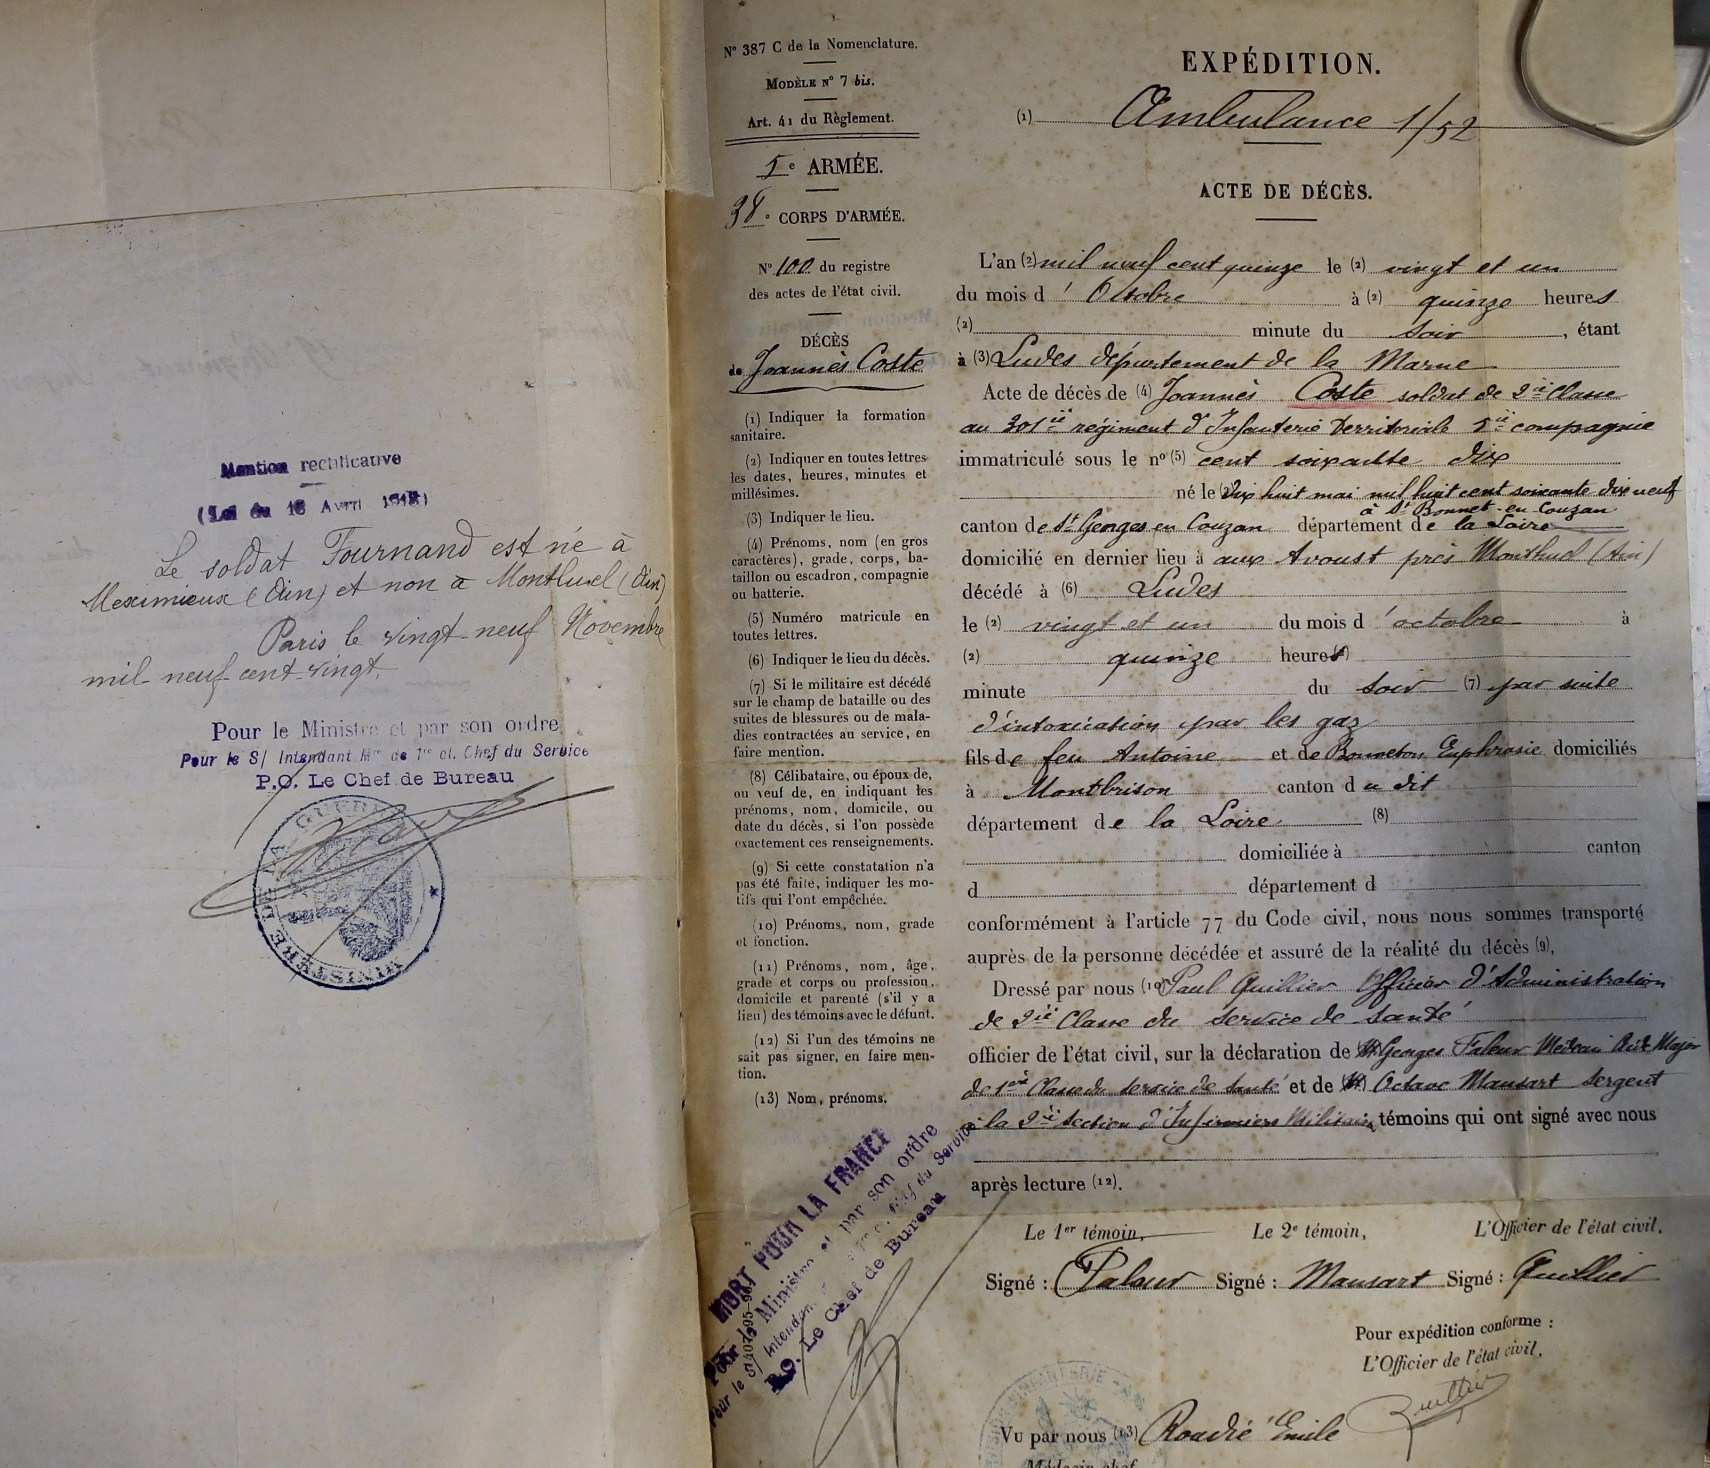 Mention rectificative
(Loi du 18 Avril 1918)
Le soldat Tournand est né à
Meximieux (Ain) et non à Montluel (Ain)
Paris le vingt-neuf Novembre
mil neuf cent vingt.
Pour le Ministre et par son ordre
Pour le S/ Intendant Mre de 1re cl. Chef du Service
P.O. Le Chef de Bureau
MINISTÈRE DE LA GUERRE
N° 387 C de la Nomenclature.
MODÈLE N° 7 bis.
Art. 41 du Règlement.
5e ARMÉE.
38e CORPS D'ARMÉE.
N° 100 du registre
des actes de l'état civil.
DÉCÈS
de Joannès Coste
(1) Indiquer la formation
sanitaire.
(2) Indiquer en toutes lettres
les dates, heures, minutes et
millésimes.
(3) Indiquer le lieu.
(4) Prénoms, nom (en gros
caractères), grade, corps, ba-
taillon ou escadron, compagnie
ou batterie.
(5) Numéro matricule en
toutes lettres.
(6) Indiquer le lieu du décès.
(7) Si le militaire est décédé
sur le champ de bataille ou des
suites de blessures ou de mala-
dies contractées au service, en
faire mention.
(8) Célibataire, ou époux de,
ou veuf de, en indiquant les
prénoms, nom, domicile, ou
date du décès, si l'on possède
exactement ces renseignements.
(9) Si cette constatation n'a
pas été faite, indiquer les mo-
tifs qui l'ont empêchée.
(10) Prénoms, nom, grade
et fonction.
(11) Prénoms, nom, âge,
grade et corps ou profession,
domicile et parenté (s'il y a
lieu) des témoins avec le défunt.
(12) Si l'un des témoins ne
sait pas signer, en faire men-
tion.
(13) Nom, prénoms.
MORT POUR LA FRANCE
Pour le Ministre et par son ordre
Pour le S/ Intendant Chef du Service
P.O. Le Chef de Bureau
EXPÉDITION.
(1) Ambulance 1/52
ACTE DE DÉCÈS.
L'an (2) mil neuf cent quinze le (2) vingt et un
du mois d'Octobre à (2) quinze heures
(2) minute du soir, étant
à (3) Ludes département de la Marne
Acte de décès de (4) Joannès Coste soldat de 2ie Classe
au 301ie régiment d'Infanterie Territoriale 5ie compagnie
immatriculé sous le n° (5) cent soixante dix
né le (2) dix huit mai mil huit cent soixante dix neuf
à St Bonnet-en Couzan
canton de St Georges en Couzan département de la Loire
domicilié en dernier lieu à aux Avoust près Montluel (Ain)
décédé à (6) Ludes
le (2) vingt et un du mois d'octobre à
(2) quinze heures
minute du soir (7) par suite
d'intoxication par les gaz
fils de feu Antoine et de Bonnebon Euphrasie domiciliés
à Montbrison canton du dit
département de la Loire (8)
domiciliée à canton
d département d
conformément à l'article 77 du Code civil, nous nous sommes transporté
auprès de la personne décédée et assuré de la réalité du décès (9).
Dressé par nous (10) Paul Quillier Officier d'Administration
de 2ie Classe du service de santé
officier de l'état civil, sur la déclaration de Georges Faleur Médecin Aide Major
de 1ère Classe du service de santé et de Octave Mansart sergent
à la 2ie section d'Infirmiers Militaires témoins qui ont signé avec nous
après lecture (12).
Le 1er témoin, Le 2e témoin, L'Officier de l'état civil,
Signé : Faleur Signé : Mansart Signé : Quillier
Pour expédition conforme :
L'Officier de l'état civil,
Quillier
Vu par nous (13) Roadié Emile
Médecin chef